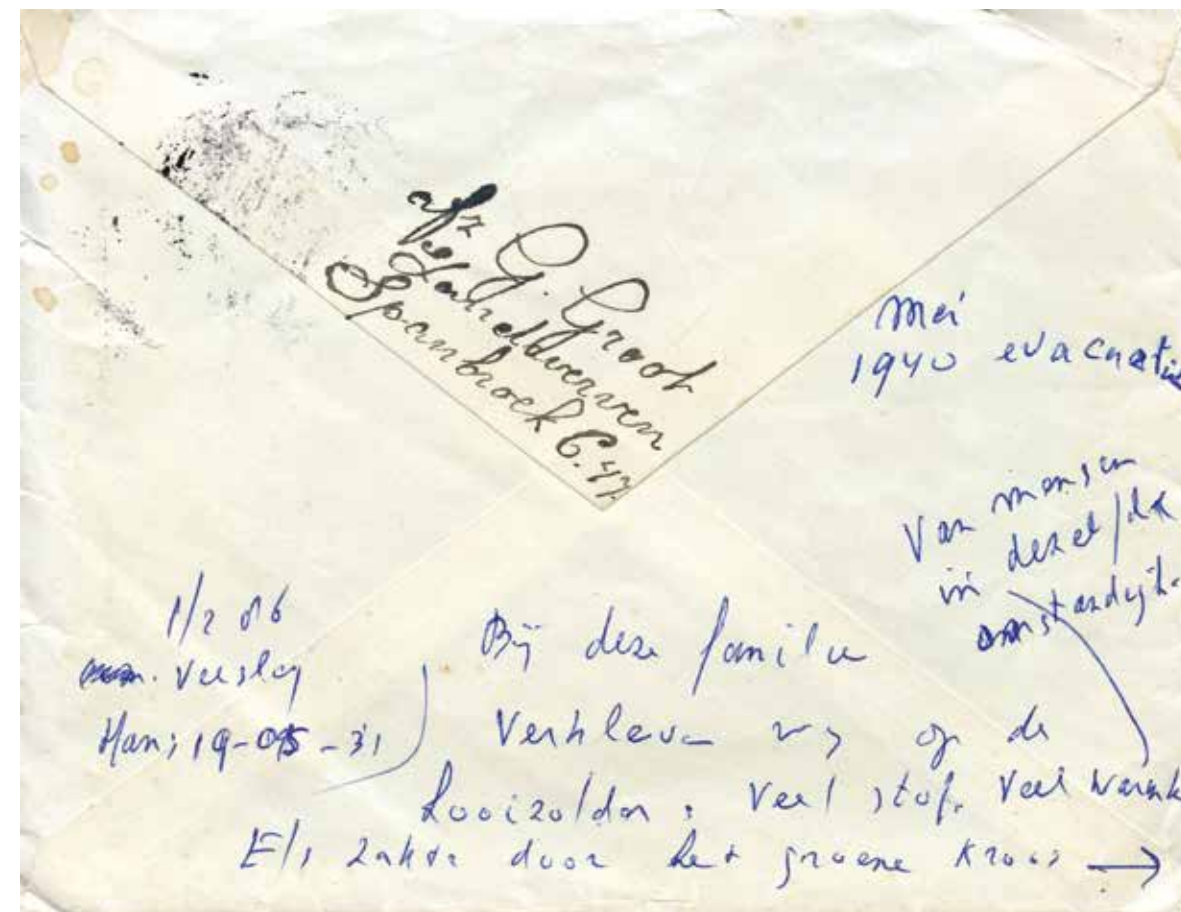 afz G. Groot
Spanbroek C.47.
Mei
1940 evacuatie
Van mensen
in dezelfde
omstandigh.
1/2 06
Verslag
Hans 19-05-31
Bij deze familie
Verbleven wij op de
hooizolder: Veel stof. Veel warmte
Els zakte door het groene kroos →